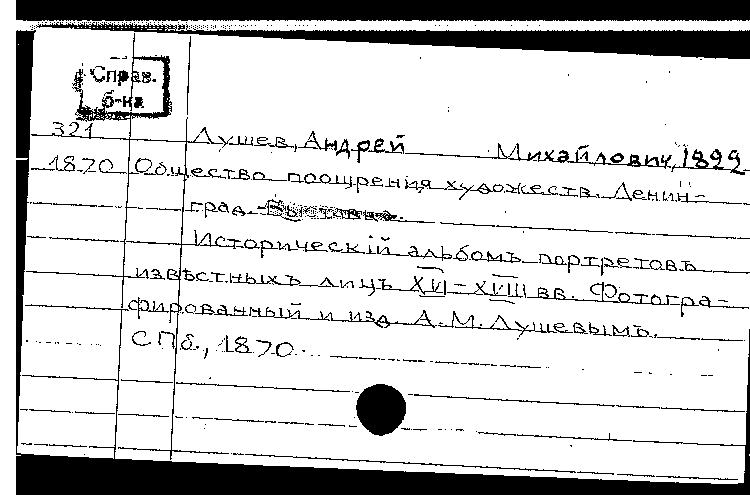 Справ.
б-ка
321 Лушев, Андрей Михайлович, 1899
1870 Общество поощрения художеств. Ленин-
град.
Историческій альбомъ портретовъ
извѣстныхъ лицъ XVI-XVIII вв. Фотогра-
фированный и изд. А.М.Лушевымъ.
СПб., 1870.